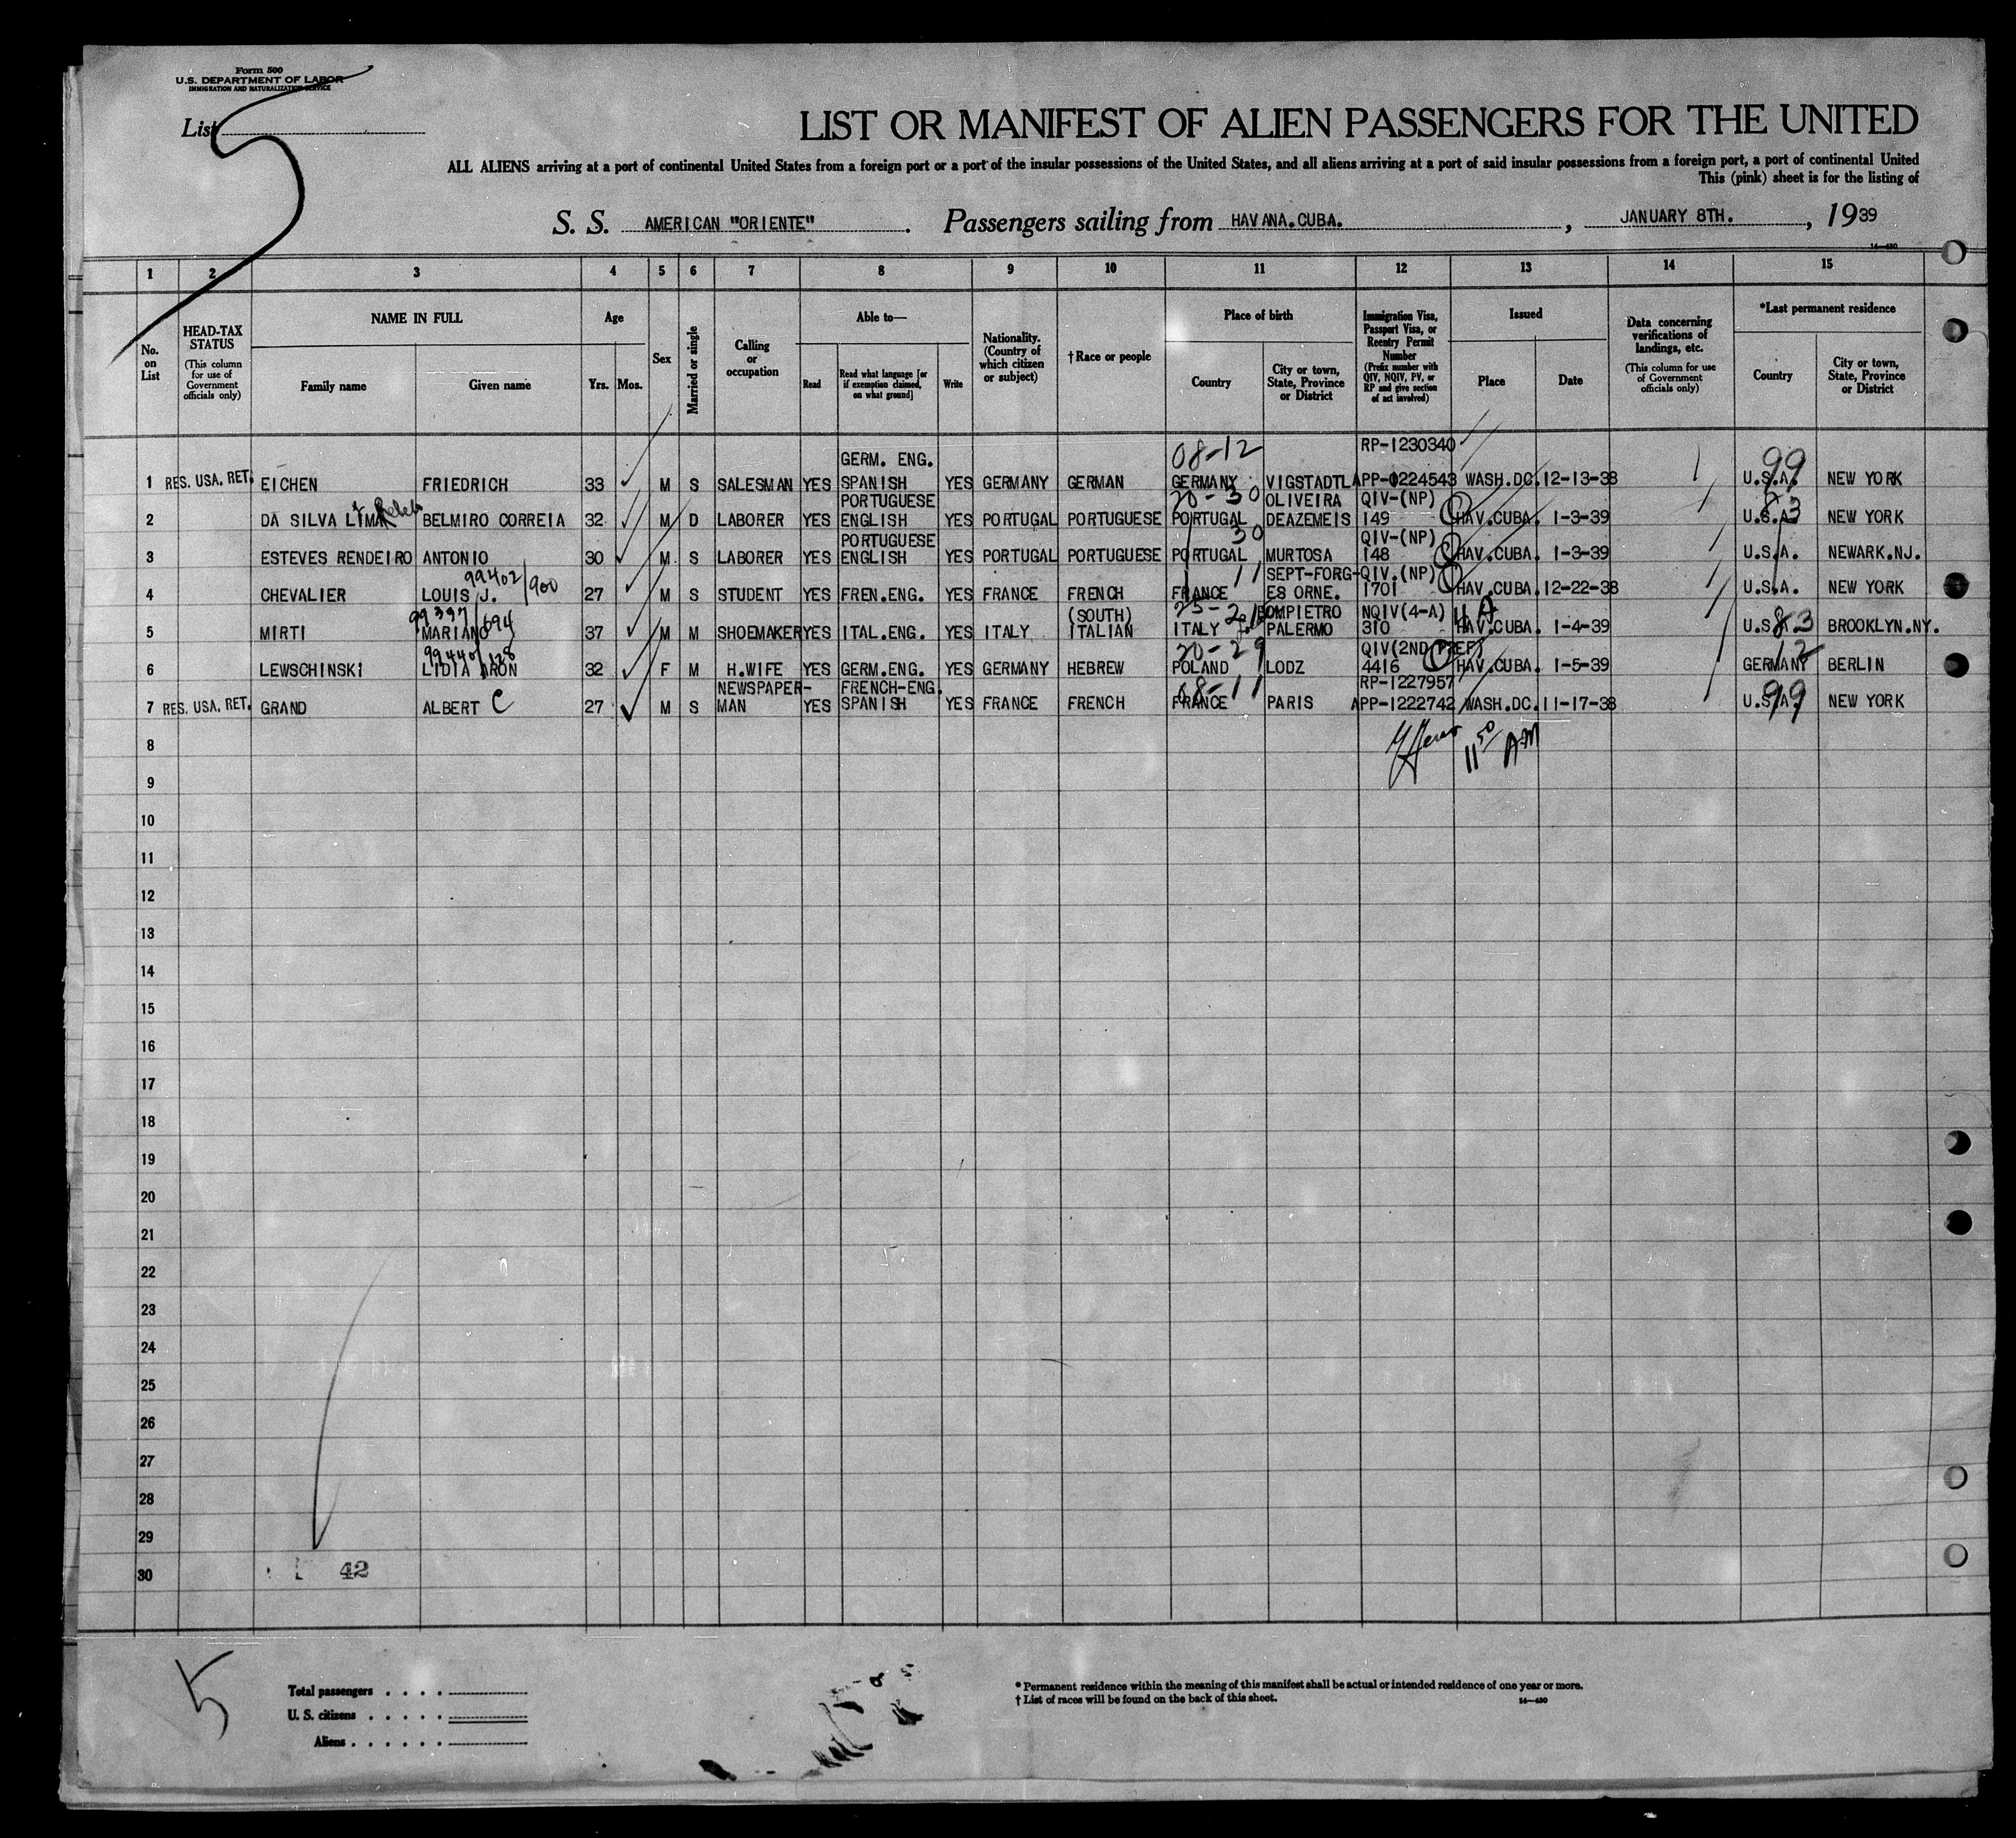 Form 500
U.S. DEPARTMENT OF LABOR
IMMIGRATION AND NATURALIZATION SERVICE
List
5
LIST OR MANIFEST OF ALIEN PASSENGERS FOR THE UNITED
ALL ALIENS arriving at a port of continental United States from a foreign port or a port of the insular possessions of the United States, and all aliens arriving at a port of said insular possessions from a foreign port, a port of continental United
This (pink) sheet is for the listing of
S. S. AMERICAN "ORIENTE". Passengers sailing from HAVANA.CUBA. , JANUARY 8TH. , 1939
14—480
1 2 3 4 5 6 7 8 9 10 11 12 13 14 15
No. on List
HEAD-TAX STATUS (This column for use of Government officials only)
NAME IN FULL
Family name Given name
Age
Yrs. Mos.
Sex
Married or single
Calling or occupation
Able to—
Read Read what language [or if exemption claimed, on what ground] Write
Nationality. (Country of which citizen or subject)
†Race or people
Place of birth
Country City or town, State, Province or District
Immigration Visa, Passport Visa, or Reentry Permit Number (Prefix number with QIV, NQIV, PV, or RP and give section of act involved)
Issued
Place Date
Data concerning verifications of landings, etc. (This column for use of Government officials only)
*Last permanent residence
Country City or town, State, Province or District
GERM. ENG. 08-12 RP-1230340 99
1 RES. USA. RET. EICHEN FRIEDRICH 33 M S SALESMAN YES SPANISH YES GERMANY GERMAN GERMANY VIGSTADTL APP-0224543 WASH.DC. 12-13-38 U.S.A. NEW YORK
PORTUGUESE 20-30 OLIVEIRA QIV-(NP) 83
2 DA SILVA LIMA BELMIRO CORREIA 32 M D LABORER YES ENGLISH YES PORTUGAL PORTUGUESE PORTUGAL DEAZEMEIS 149 HAV.CUBA. 1-3-39 U.S.A. NEW YORK
PORTUGUESE 30 QIV-(NP)
3 ESTEVES RENDEIRO ANTONIO 30 M S LABORER YES ENGLISH YES PORTUGAL PORTUGUESE PORTUGAL MURTOSA 148 HAV.CUBA. 1-3-39 U.S.A. NEWARK.NJ.
99402/900 11 SEPT-FORG- QIV.(NP)
4 CHEVALIER LOUIS J. 27 M S STUDENT YES FREN.ENG. YES FRANCE FRENCH FRANCE ES ORNE. 1701 HAV.CUBA. 12-22-38 U.S.A. NEW YORK
99397/694 (SOUTH) 25-2 COMPIETRO NQIV(4-A) 4A
5 MIRTI MARIANO 37 M M SHOEMAKER YES ITAL.ENG. YES ITALY ITALIAN ITALY PALERMO 310 HAV.CUBA. 1-4-39 U.S. 83 BROOKLYN.NY.
99440/128 20-29 QIV(2ND PREF) 12
6 LEWSCHINSKI LIDIA ARON 32 F M H.WIFE YES GERM.ENG. YES GERMANY HEBREW POLAND LODZ 4416 HAV.CUBA. 1-5-39 GERMANY BERLIN
NEWSPAPER- FRENCH-ENG. 08-11 RP-1227957 99
7 RES. USA. RET. GRAND ALBERT C 27 M S MAN YES SPANISH YES FRANCE FRENCH FRANCE PARIS APP-1222742 WASH.DC. 11-17-38 U.S.A. NEW YORK
11 50 AM
8
9
10
11
12
13
14
15
16
17
18
19
20
21
22
23
24
25
26
27
28
29
30
42
5
Total passengers . . . .
U. S. citizens . . . . .
Aliens . . . . . .
* Permanent residence within the meaning of this manifest shall be actual or intended residence of one year or more.
† List of races will be found on the back of this sheet.
14—480